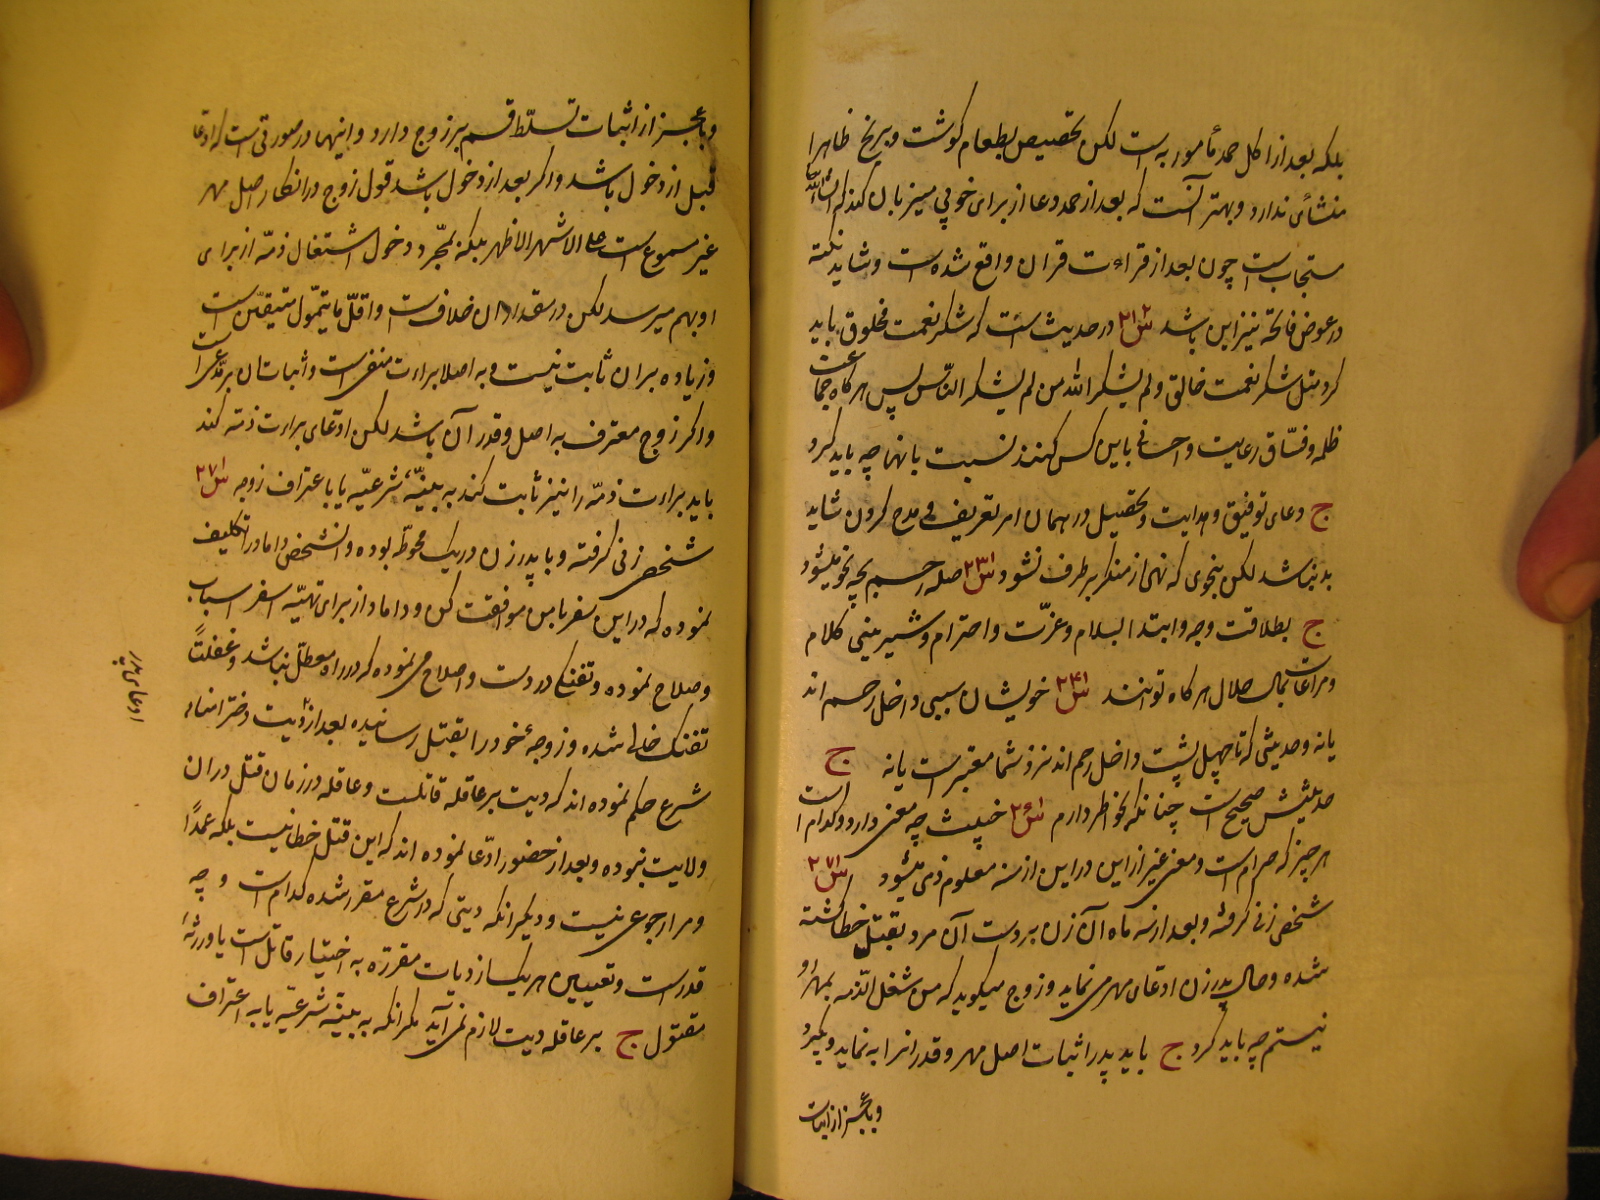 بلکه بعد از اکل حمد مأمور به است لکن تخصیص بطعام گوشت و برنج ظاهرا
منشأی ندارد و بهتر آنست که بعد از حمد دعا از برای خوبی میزبان کند که انشاءالله
مستجاب است چون بعد از قراءت قران واقع شده است و شاید نکته
در عوض فاتحه نیز این باشد س۲۲ در حدیث است که شکر نعمت مخلوق باید
کرد مثل شکر نعمت خالق و لم یشکر الله من لم یشکر الناس پس هرگاه جماعت
ظلمه و فسّاق رعایت و احسانی باین کس کنند نسبت بانها چه باید کرد
ج دعای توفیق و هدایت و تحصیل در همان امر تعریف فی مدح کردن شاید
بد نباشد لکن بنحوی که نهی از منکر برطرف نشود س۲۳ صله رحم بچه نحو میشود
ج بطلاقت وجه و ابتدا بسلام و عزّت و احترام و شیرینی کلام
و مراعات بمال حلال هرگاه توانند س۲۴ خویشان سببی داخل رحم اند
یا نه و حدیثی که تا چهل پشت داخل رحم اند نزد شما معتبر است یا نه ج
حدیثش صحیح است چنانکه بخاطر دارم س۲۶ خبیث چه معنی دارد و کدام است
هر چیز که حرام است و معنی غیر از این در این ازمنه معلوم نمی شود س۲۷
شخصی زنی گرفته و بعد از سه ماه آن زن بر دست آن مرد بقتل خطا کشته
شده و حال پدر زن ادعای مهر می نماید و زوج میگوید که من مشغل الذمه بمهر او
نیستم چه باید کرد ج باید پدر اثبات اصل مهر و قدر انرا به نماید و بگیرد
و با عجز از اثبات
و با عجز از اثبات تسلّط قسم بر زوج دارد و اینها در صورتی است که ادعا
قبل از دخول باشد و اگر بعد از دخول باشد قول زوج در انکار اصل مهر
غیر مسموع است علی الاشهر الاظهر بلکه بمجّرد دخول اشتغال ذمّه از برای
او بهم میرسد لکن در مقدار ان خلاف است و اقلّ ما یتموّل متیقّن است
و زیاده بر ان ثابت نیست و به اصل براءت منفی است و اثبات ان بر مدّعی است
و اگر زوج معترف به اصل و قدر آن باشد لکن ادّعای براءت ذمّه کند
باید براءت ذمّه را نیز ثابت کند به بینّهٔ شرعیّه یا با عتراف زوجه س۲۷
شخصی زنی گرفته و با پدر زن در یک محوطّه بوده و انشخص داماد را تکلیف
نموده که در این سفر با من موافقت کن و داماد از برای تهیّه سفر اسباب
و صلاح نموده و تفنگی در دست و اصلاح می نموده که در راه معطّل نباشد و غفلتاً
تفنک خالی شده و زوجهٔ خود را بقتل رسانیده بعد از دیت دختر امناء
شرع حکم نموده اند که دیت بر عاقله قاتلست و عاقله در زمان قتل در ان
ولایت نبوده و بعد از حضور ادّعا نموده اند که این قتل خطا نیست بلکه عمداً
و مرا رجوعی نیست و دیگر انکه دیتی که در شرع مقرر شده کدام است و چه
قدر است و تعیین هر یک از دیات مقرره به اختیار قاتل است یا ورثهٔ
مقتول ج بر عاقله دیت لازم نمی آید مگر انکه به بینّهٔ شرعیّه یا به اعتراف
ادعای پدر